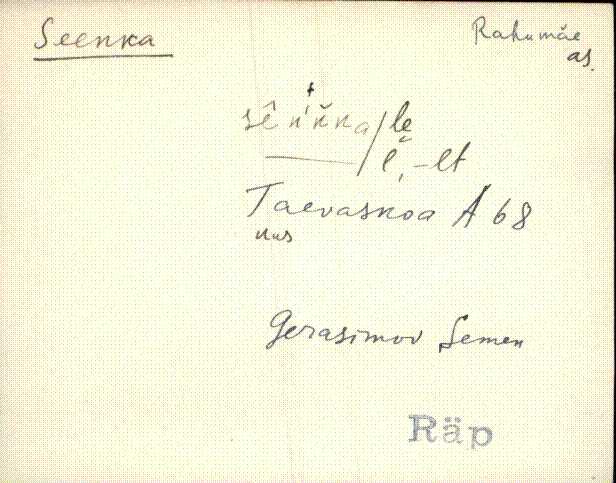 Seenka
Rahumäe
as.
sê n'ŭka/le
l, -lt
Taevaskoa A 68
Gerasimov Semen
Räp